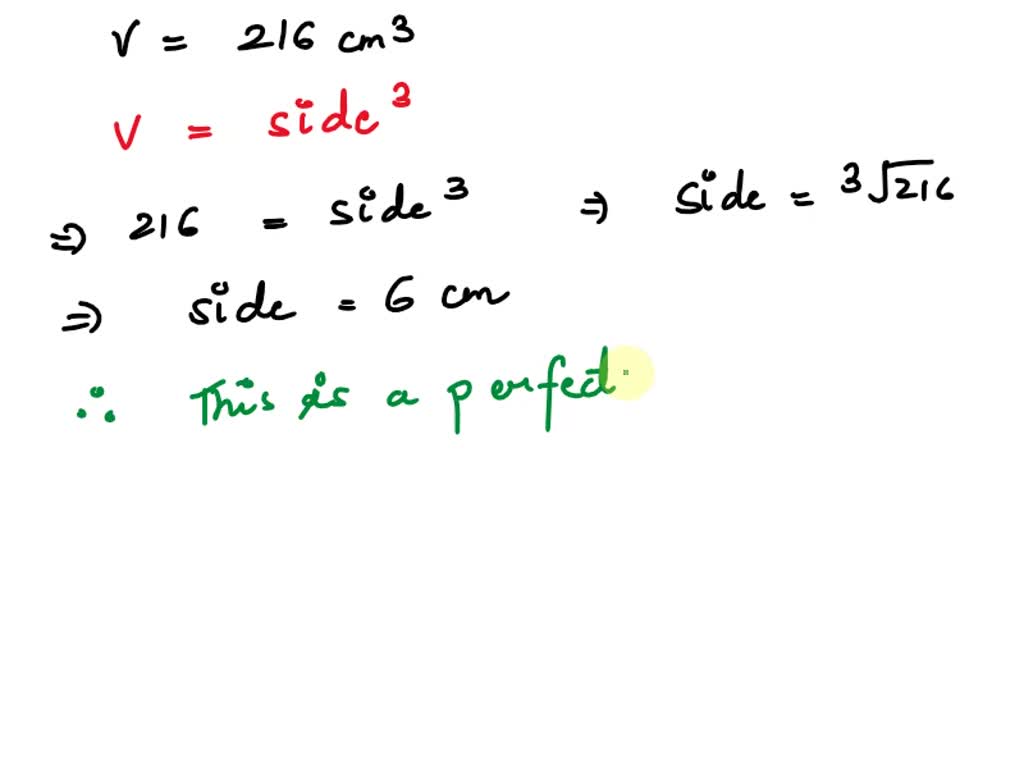 V = 216 cm³
V = side³
⇒ 216 = side³ ⇒ side = ³√216
⇒ side = 6 cm
∴ This is a perfect